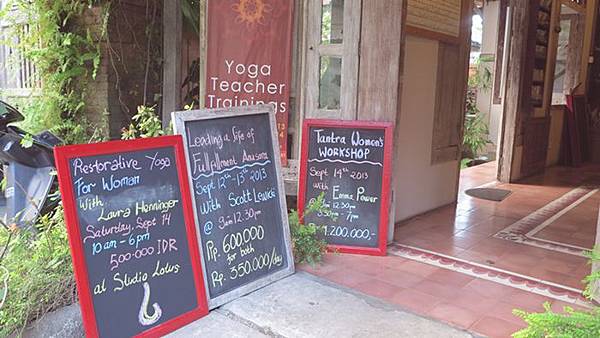 Yoga
Teacher
Trainings
Restorative Yoga
For Woman
With
Laura Henninger
Saturday, Sept 14
10 am - 6 pm
500.000 IDR
at Studio Lotus
Leading a Life of
Fullfillment
Sept 12th - 13th 2013
with Scott Lewicki
@ 9am 12.30pm
Rp. 600.000
for both
Rp. 350.000/day
Tantra Women's
WORKSHOP
Sept 14th 2013
with Emma Power
9am 12.30
- 7pm
1.200.000.-